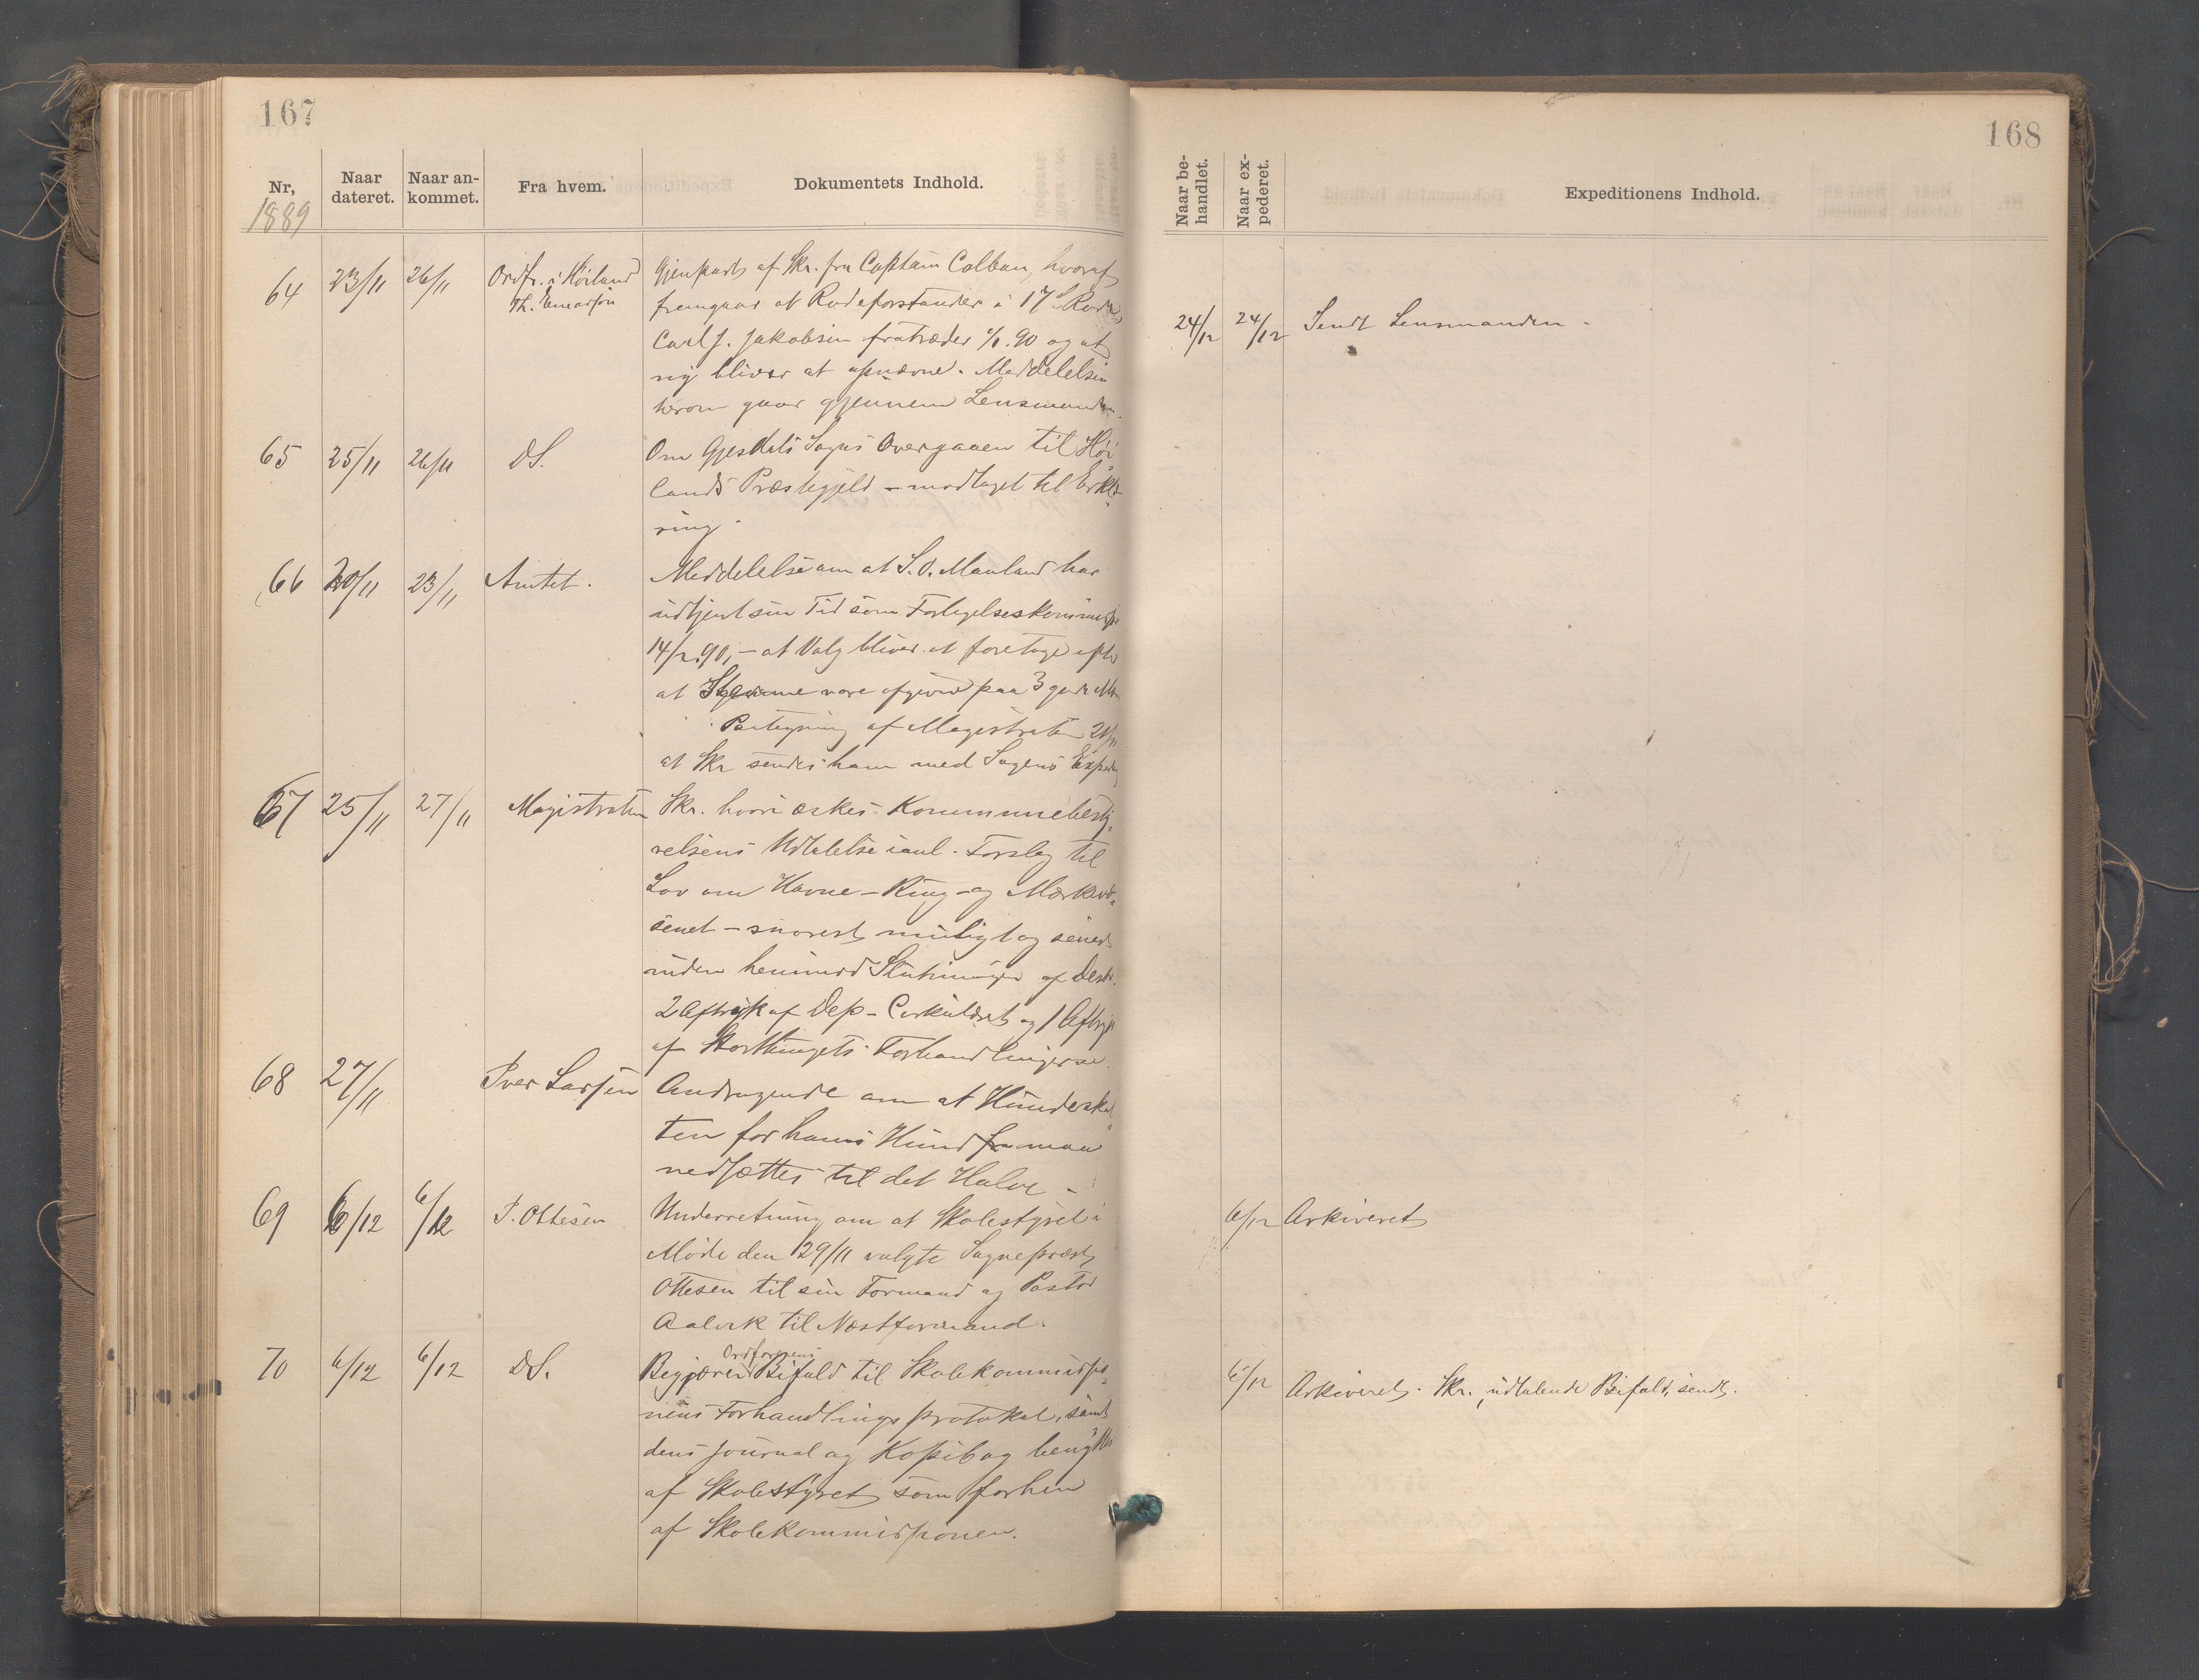 167
Nr,
1889
Naar dateret.
Naar an-kommet.
Fra hvem.
Dokumentets Indhold.
64 23/11 26/11 Ordf. i Høiland
Gjenpart af Skr. fra Captain Colban, hvoraf
fremgaar at Rodeforstander i 17de Rode
Carl J. Jakobsen fratræder 1/1.90 og at
ny bliver at opnævne. Meddelelsen
herom gaar gjennem Lensmanden.
65 25/11 26/11 DS.
Om Gjesdals Sogns Overgaaen til Høi
lands Præstegjeld – modtaget til Erklæ-
ring.
66 20/11 23/11 Amtet.
Meddelelse om at S. O. Mauland har
udtjent sin Tid som Forligelseskommissær
14/2.90, – at Valg bliver at foretage efter
at Stemme være afgivne paa 3 gode Mæn
Paategning af Magistraten 21/11
at Skr sendes ham med Sagens Exped
67 25/11 27/11 Magistraten
Skr. hvori æskes Kommunebesty-
relsens Udtalelse i anl. Forslag til
Lov om Havne – Ring – og Mærkevæ-
senet – snarest muligt og senest
inden henimod Slutningen af Desbr.
2 Aftryk af Dep – Cirkulæret og 1 Aftryk
af Storthingets Forhandlinger
68 27/11 Iver Larsen
Andragende om at Hundeskat
ten for hans Hund maa
nedsættes til det Halve –
69 6/12 6/12 P. Ottesen
Underretning om at Skolestyret i
Møde den 29/11 valgte Sognepræst
Ottesen til sin Formand og Pastor
Aalvik til Næstformand.
70 6/12 6/12 DS.
Ordførerens
Begjærer Bifald til Skolekommissio-
nens Forhandlingsprotokol, samt
dens Journal og Kopibog benyttes
af Skolestyret som forhen
af Skolekommissionen.
168
Naar be-handlet.
Naar ex-pederet.
Expeditionens Indhold.
24/12 24/12 Sendt Lensmanden.
6/12 Arkiveret
6/12 Arkiveret. Skr., udtalende Bifald, sendt.